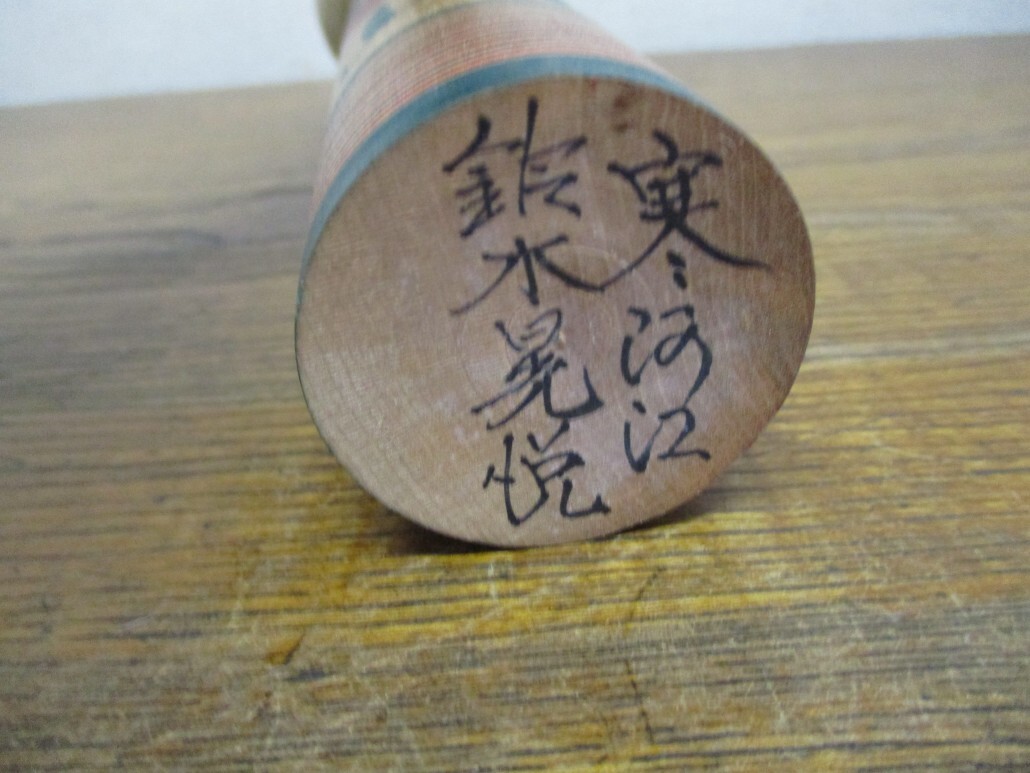 寒河江
鈴木晃悦